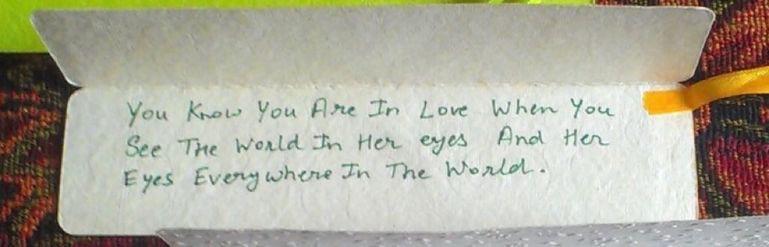 You Know You Are In Love When You
See The World In Her eyes And Her
Eyes Everywhere In The World.